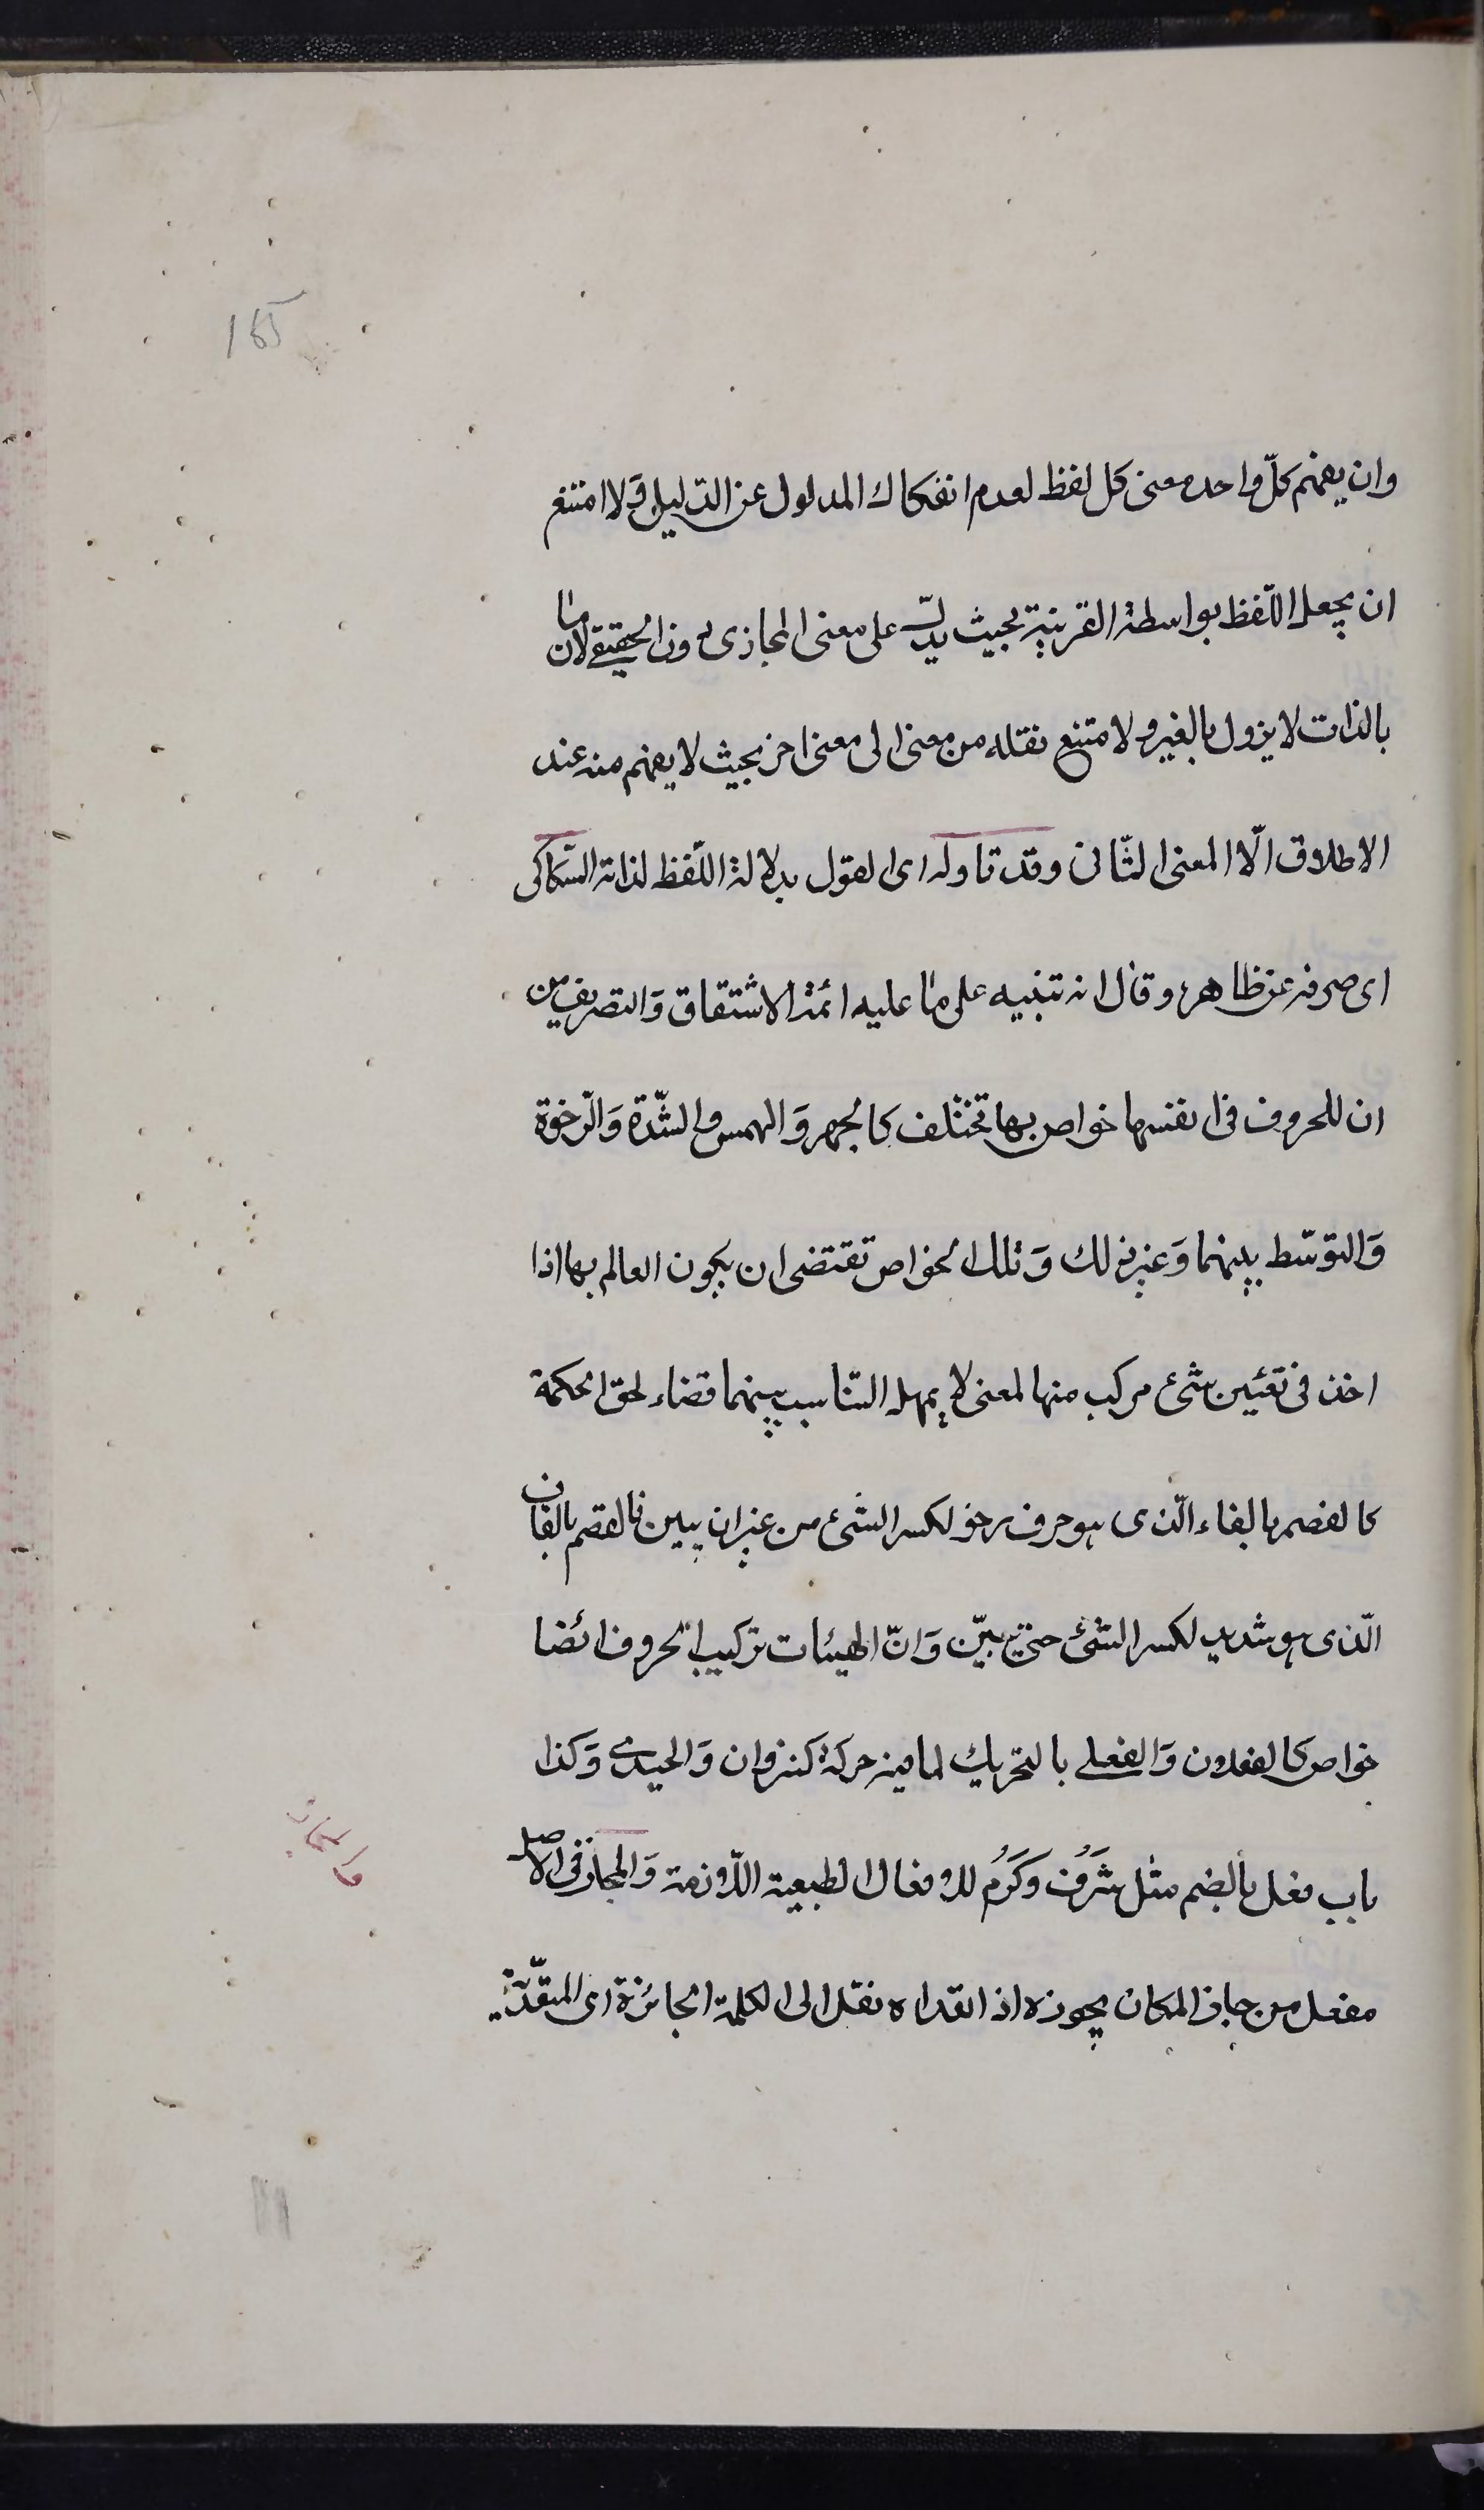 165
وان يفهم كلّ واحد معنى كل لفظ لعدم انفكاك المدلول عن الدّليل وَلاامتنع
ان يجعل اللّفظ بواسطة القرينة بحيث يدلّ على معنى المجازى دون الحقيقے لان ما
بالذات لا يزول بالغير ولامتنع نقله من معنى الى معنى اخر بحيث لا يفهم منه عند
الاطلاق الّا المعنى الثّانى وقد تاوله اى القول بدلالة اللّفظ لذاته السّكاكى
اى صرفه عن ظاهره وقال انه تنبيه على ما عليه ائمة الاشتقاق وَالتصريف من
ان للحروف فى انفسها خواص بها تختلف كالجهر وَالهمس والشّدة وَالرّخوة
وَالتوسّط بينهما وَغير ذلك وَتلك الخواص تقتضى ان يكون العالم بها اذا
اخذ فى تعئين شئ مركب منها لمعنى لا يهمل التّناسب بينهما قضاء لحق الحكمة
كالفصم بالفاء الّذى هو حرف رخو لكسر الشئ من غير ان يبين فالقصم بالقاف
الّذى هو شديد لكسر الشئ حتى يبيّن وَانّ الهيئات تركيب الحروف ائضا
خواص كالفعلان وَالفعلے بالتحريك لما فيه حركة كنزوان وَالحيدے وَكذا
باب فعل بالضم مثل شَرُفَ وَكَرُمَ للافعال الطبيعية اللّازمة وَالمجاز فى الاصل
والمجاز
مفعل من جاز المكان يجوزه اذا تعداه نقل الى الكلمة الجائزة اى المتعّدية